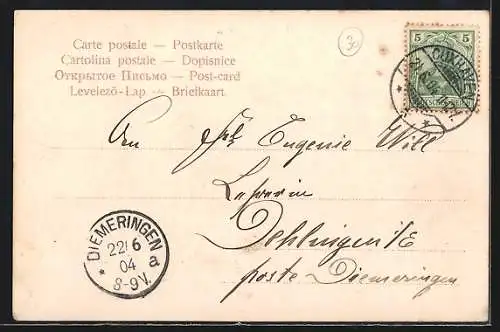 Carte postale — Postkarte
Cartolina postale — Dopisnice
Открытое Письмо — Post-card
Levelező-Lap — Briefkaart
30
5 5
CUXHAVEN
An Frl. Eugenie Will
Lehrerin
Dehlingen i/E
poste Diemeringen
DIEMERINGEN
22/6
04
8-9V.
* a